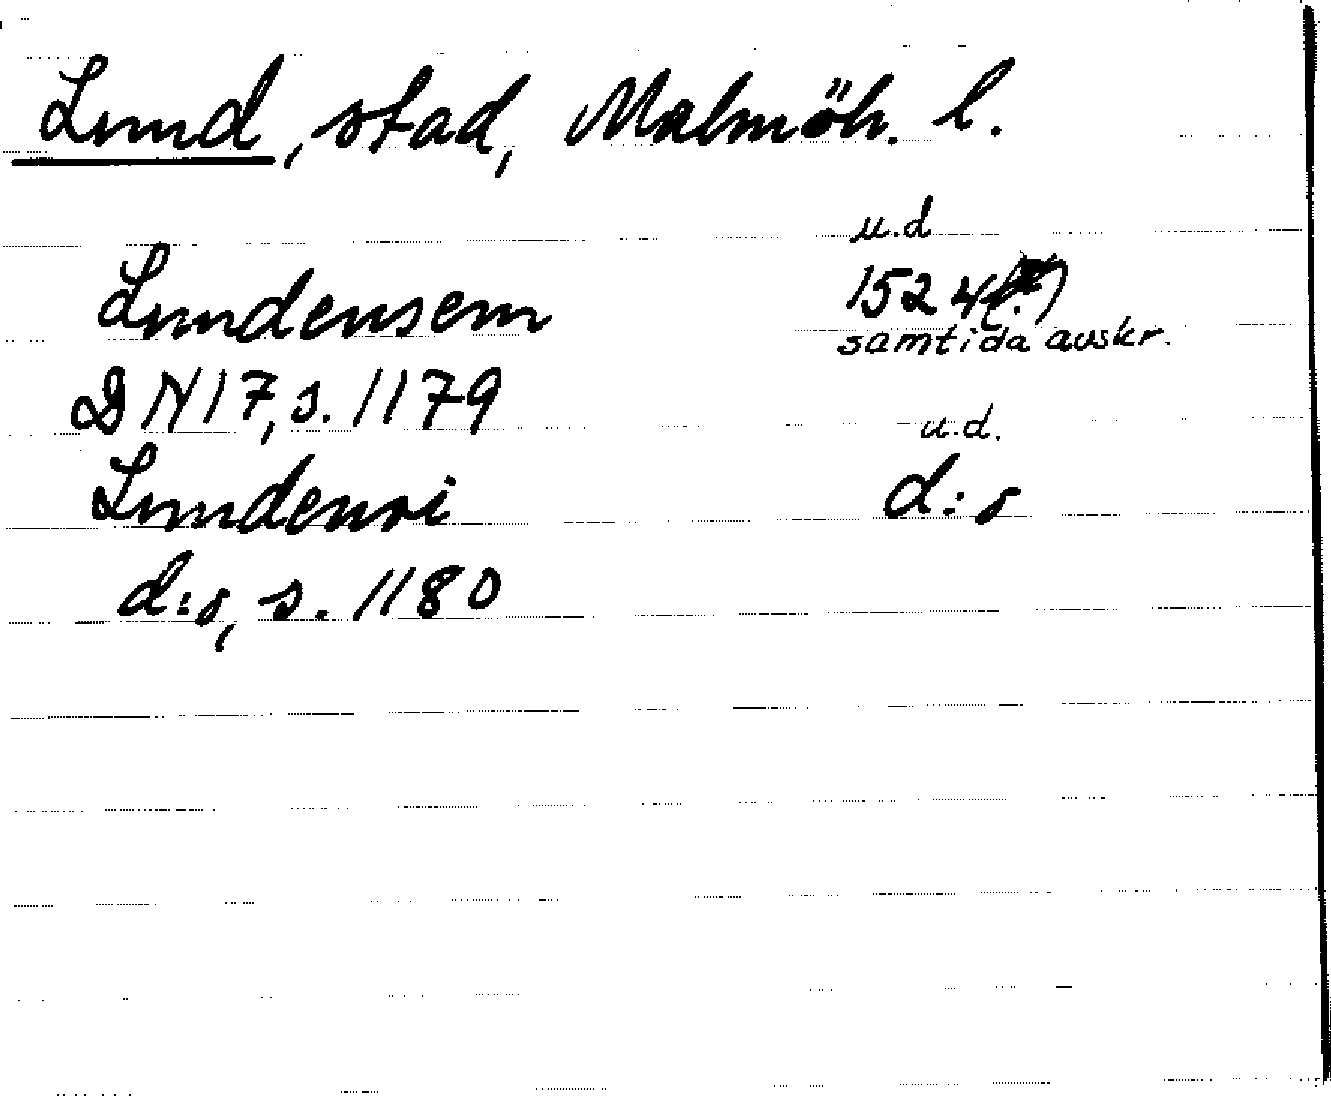 Lund, stad, Malmöh. l.
u.d
Lundensem 1524(?)
samtida avskr.
DN 17, s. 1179
u.d.
Lundensi d:o
d:o, s. 1180